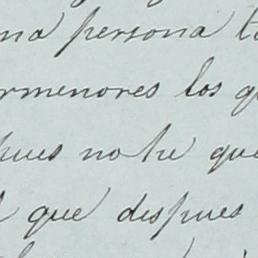 na persona t
rmenores los q
pues noté que
que despues